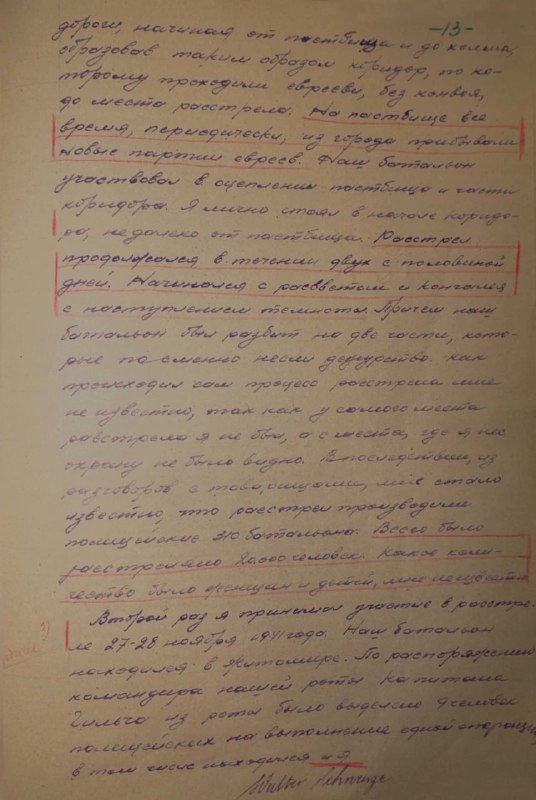 -13-
дороги, начиная от пастбища и до холма,
образовав таким образом коридор, по ко-
торому проходили евреев, без конвоя,
до места расстрела. На пастбище все
время, периодически, из города прибывали
новые партии евреев. Наш батальон
участвовал в оцеплении пастбища и части
коридора. Я лично стоял в начале коридо-
ра, недалеко от пастбища. Расстрел
продолжался в течении двух с половиной
дней. Начинался с рассветом и кончался
с наступлением темноты. Причем наш
батальон был разбит на две части, кото-
рые по сменно несли дежурство. Как
происходил сам процесс расстрела мне
не известно, так как у самого места
расстрела я не был, а с места, где я нес
охрану не было видно. Впоследствии, из
разговоров с товарищами, мне стало
известно, что расстрел производили
полицейские батальона. Всего было
расстреляно человек. Какое коли-
чество было женщин и детей, мне неизвестно
Второй раз я принимал участие в расстре-
ле 27-28 ноября 1941 года. Наш батальон
находился в Житомире. По распоряжению
командира нашей роты капитана
из роты было выделено человек
полицейских на выполнение одной операции
в том числе находился и я.
Walter